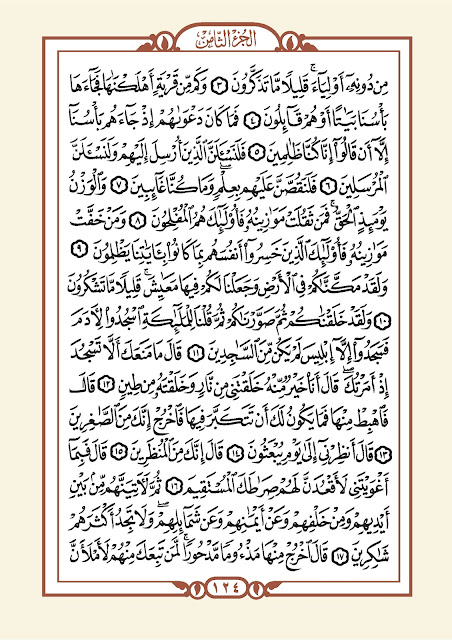 الجزء الثامن
مِن دُونِهِۦٓ أَوْلِيَآءَۗ قَلِيلًا مَّا تَذَكَّرُونَ ٣ وَكَم مِّن قَرْيَةٍ أَهْلَكْنَٰهَا فَجَآءَهَا
بَأْسُنَا بَيَٰتًا أَوْ هُمْ قَآئِلُونَ ٤ فَمَا كَانَ دَعْوَىٰهُمْ إِذْ جَآءَهُم بَأْسُنَآ
إِلَّآ أَن قَالُوٓا۟ إِنَّا كُنَّا ظَٰلِمِينَ ٥ فَلَنَسْـَٔلَنَّ ٱلَّذِينَ أُرْسِلَ إِلَيْهِمْ وَلَنَسْـَٔلَنَّ
ٱلْمُرْسَلِينَ ٦ فَلَنَقُصَّنَّ عَلَيْهِم بِعِلْمٍۖ وَمَا كُنَّا غَآئِبِينَ ٧ وَٱلْوَزْنُ
يَوْمَئِذٍ ٱلْحَقُّۚ فَمَن ثَقُلَتْ مَوَٰزِينُهُۥ فَأُو۟لَٰٓئِكَ هُمُ ٱلْمُفْلِحُونَ ٨ وَمَنْ خَفَّتْ
مَوَٰزِينُهُۥ فَأُو۟لَٰٓئِكَ ٱلَّذِينَ خَسِرُوٓا۟ أَنفُسَهُم بِمَا كَانُوا۟ بِـَٔايَٰتِنَا يَظْلِمُونَ ٩
وَلَقَدْ مَكَّنَّٰكُمْ فِى ٱلْأَرْضِ وَجَعَلْنَا لَكُمْ فِيهَا مَعَٰيِشَۗ قَلِيلًا مَّا تَشْكُرُونَ
١٠ وَلَقَدْ خَلَقْنَٰكُمْ ثُمَّ صَوَّرْنَٰكُمْ ثُمَّ قُلْنَا لِلْمَلَٰٓئِكَةِ ٱسْجُدُوا۟ لِـَٔادَمَ
فَسَجَدُوٓا۟ إِلَّآ إِبْلِيسَ لَمْ يَكُن مِّنَ ٱلسَّٰجِدِينَ ١١ قَالَ مَا مَنَعَكَ أَلَّا تَسْجُدَ
إِذْ أَمَرْتُكَۖ قَالَ أَنَا۠ خَيْرٌ مِّنْهُ خَلَقْتَنِى مِن نَّارٍ وَخَلَقْتَهُۥ مِن طِينٍ ١٢ قَالَ
فَٱهْبِطْ مِنْهَا فَمَا يَكُونُ لَكَ أَن تَتَكَبَّرَ فِيهَا فَٱخْرُجْ إِنَّكَ مِنَ ٱلصَّٰغِرِينَ
١٣ قَالَ أَنظِرْنِىٓ إِلَىٰ يَوْمِ يُبْعَثُونَ ١٤ قَالَ إِنَّكَ مِنَ ٱلْمُنظَرِينَ ١٥ قَالَ فَبِمَآ
أَغْوَيْتَنِى لَأَقْعُدَنَّ لَهُمْ صِرَٰطَكَ ٱلْمُسْتَقِيمَ ١٦ ثُمَّ لَـَٔاتِيَنَّهُم مِّنۢ بَيْنِ
أَيْدِيهِمْ وَمِنْ خَلْفِهِمْ وَعَنْ أَيْمَٰنِهِمْ وَعَن شَمَآئِلِهِمْۖ وَلَا تَجِدُ أَكْثَرَهُمْ
شَٰكِرِينَ ١٧ قَالَ ٱخْرُجْ مِنْهَا مَذْءُومًا مَّدْحُورًاۖ لَّمَن تَبِعَكَ مِنْهُمْ لَأَمْلَأَنَّ
١٢٤